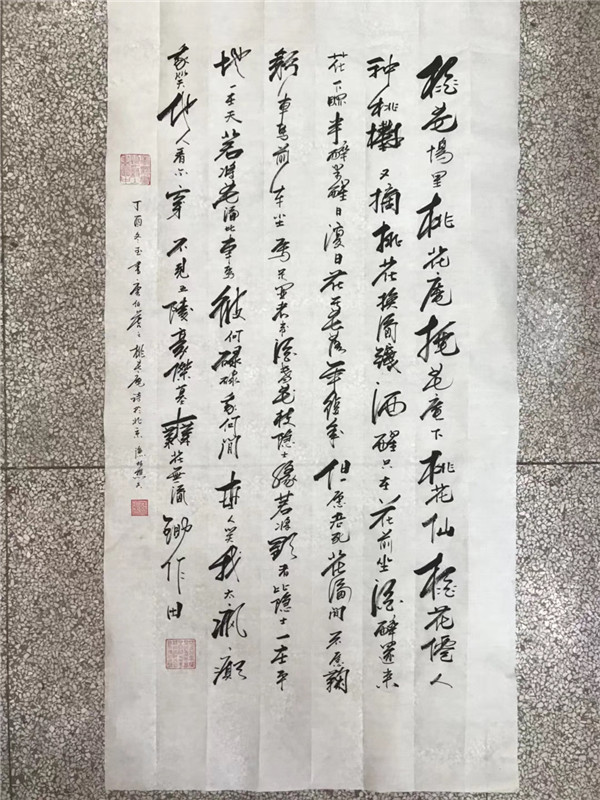 桃花塢里桃花庵桃花庵下桃花仙桃花僊人
种桃樹又摘桃花換酒錢酒醒只在花前坐酒醉還来
花下眠半醉半醒日復日花落年復年但愿老死花酒間不愿鞠
躬車馬前車塵馬足酒盞花枝隐士緣若将顯者比隐士一在平
地一在天若将花酒比車馬彼何碌碌我何閒世人笑我太瘋癫
我笑他人看不穿不見五陵豪傑墓無花無酒鋤作田
丁酉冬至書唐伯虎之桃花庵詩於北京